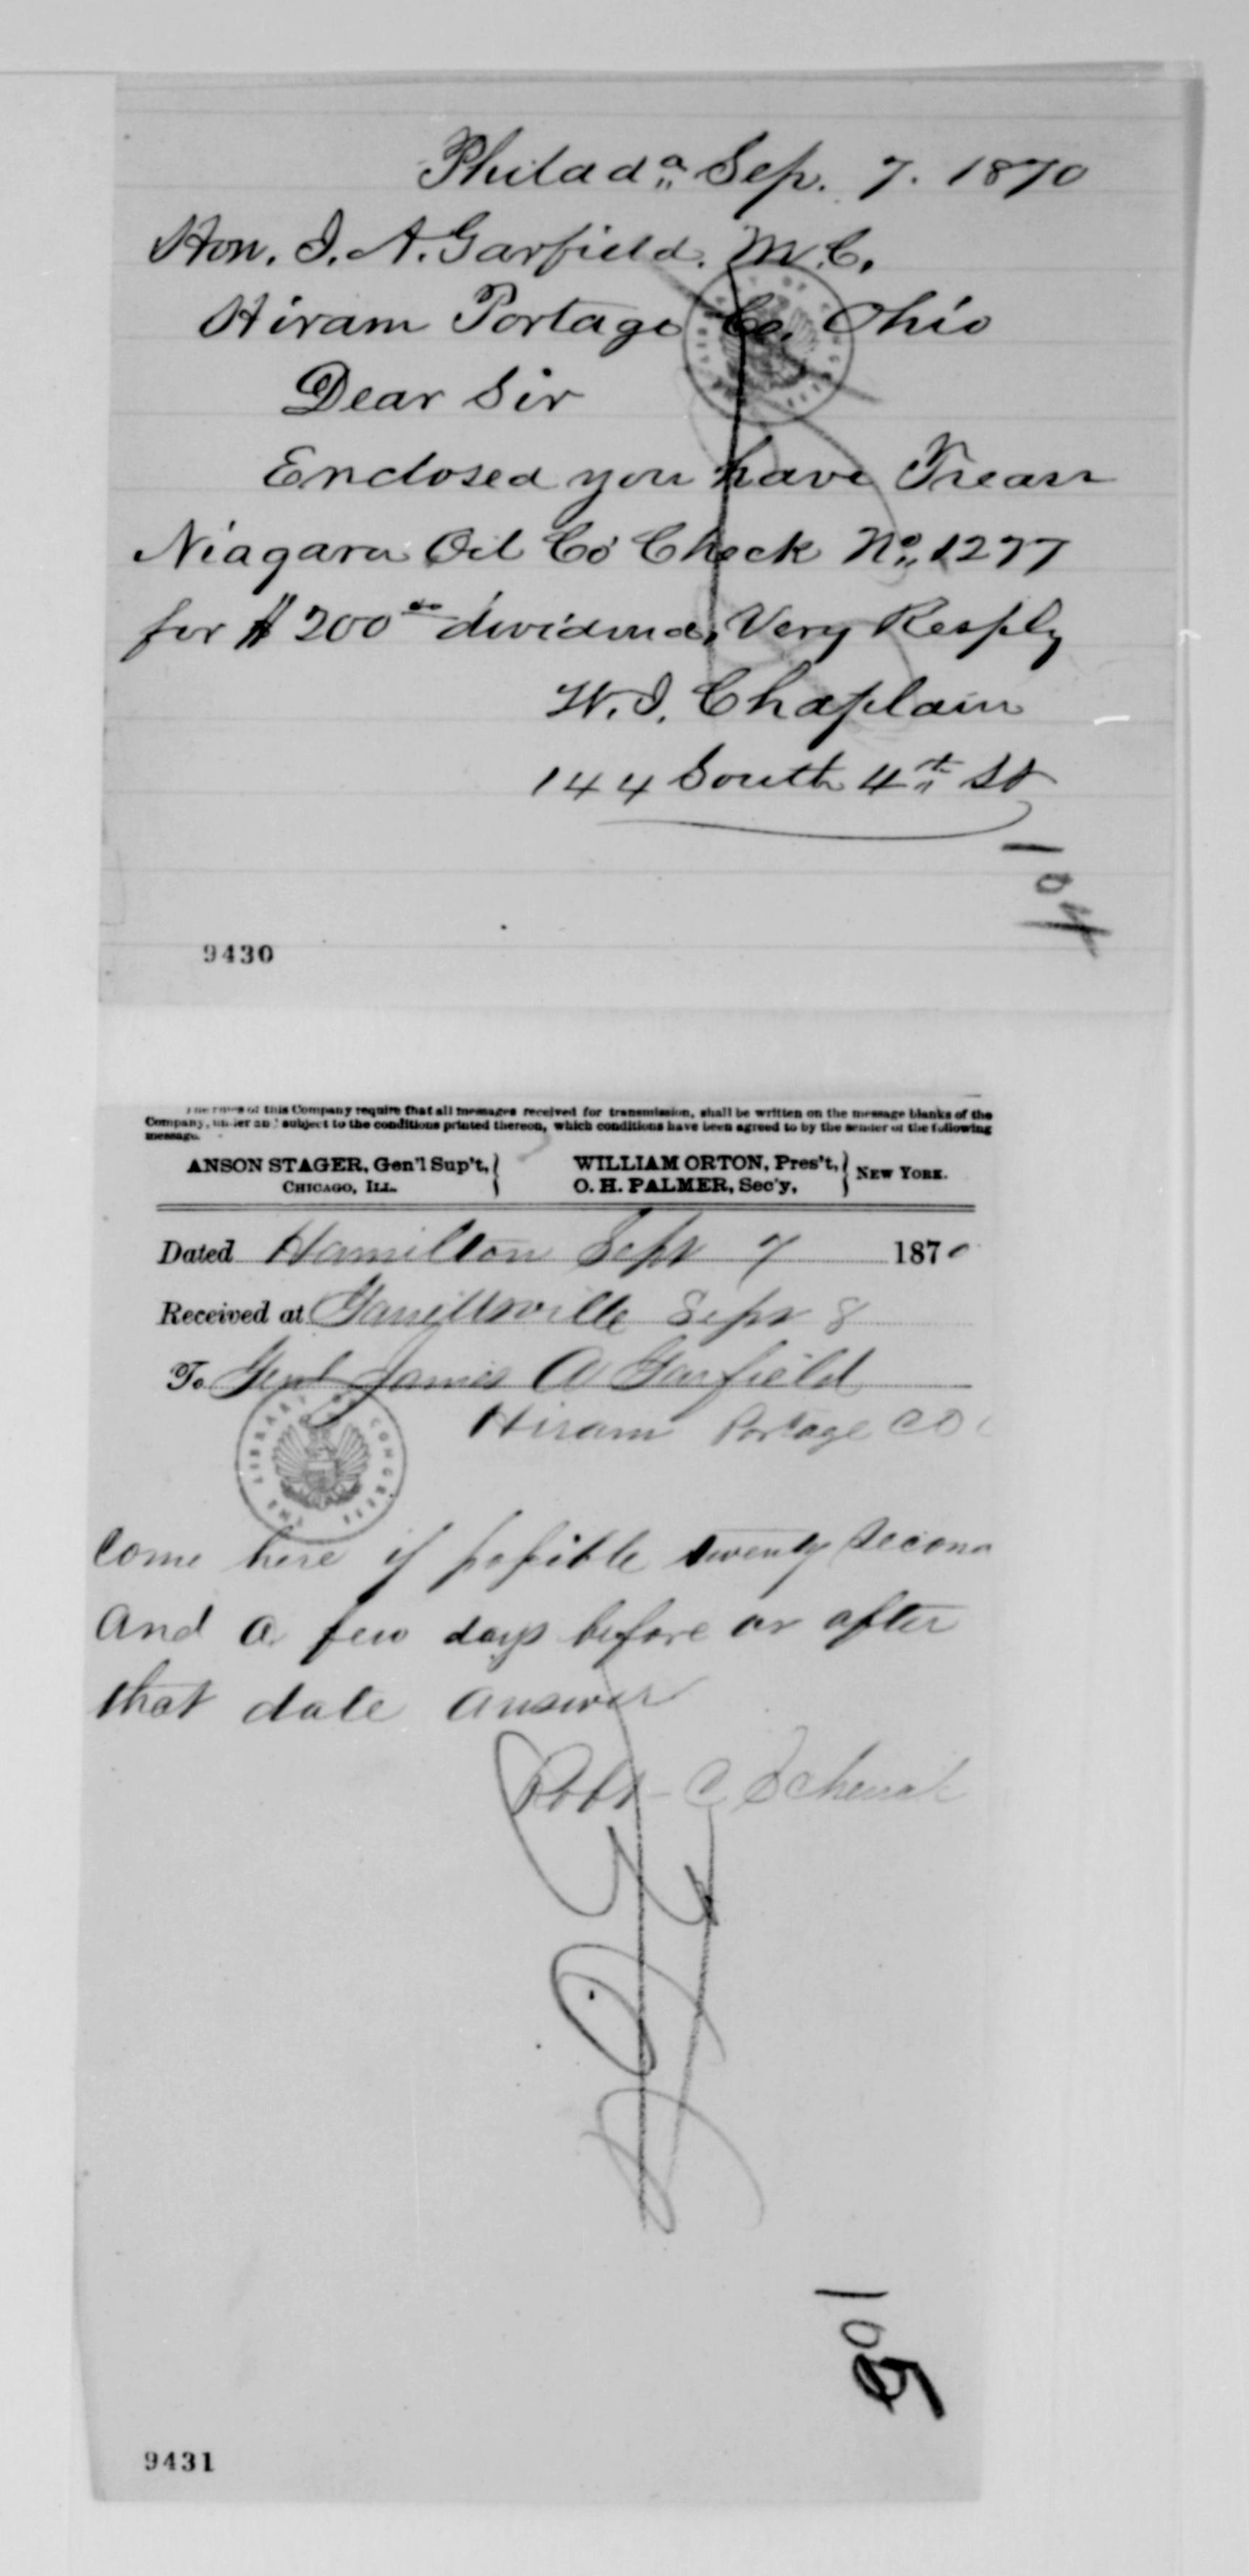 Philada. Sep. 7. 1870
Hon. J. A. Garfield. M.C.
Hiram Portage Co. Ohio
Dear Sir
Enclosed you have Treasr
Niagara Oil Co Check No. 1277
for $200 00 dividend, Very Resply
W. J. Chaplain
144 South 4th St
104
9430
The rules of this Company require that all messages received for transmission, shall be written on the message blanks of the
Company, under and subject to the conditions printed thereon, which conditions have been agreed to by the sender of the following
message.
ANSON STAGER, Gen'l Sup't, CHICAGO, ILL. WILLIAM ORTON, Pres't, O. H. PALMER, Sec'y, NEW YORK.
Dated Hamilton Sept 7 1870
Received at Garrettsville Sept 8
To Genl James A Garfield
Hiram Portage CO
THE LIBRARY OF CONGRESS
Come here if possible twenty second
and a few days before or after
that date answer
Robt C Schenck
105
9431